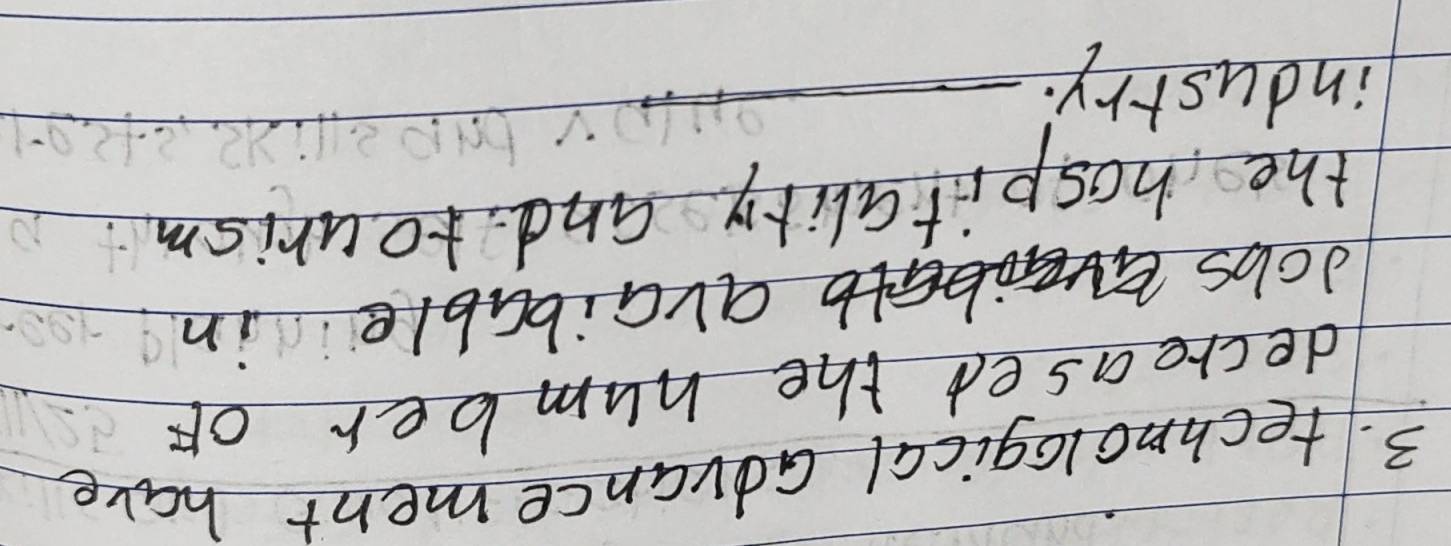 3. technological advancement have
decreased the number of
Jobs avaibable in
the hospitality and tourism
industry.